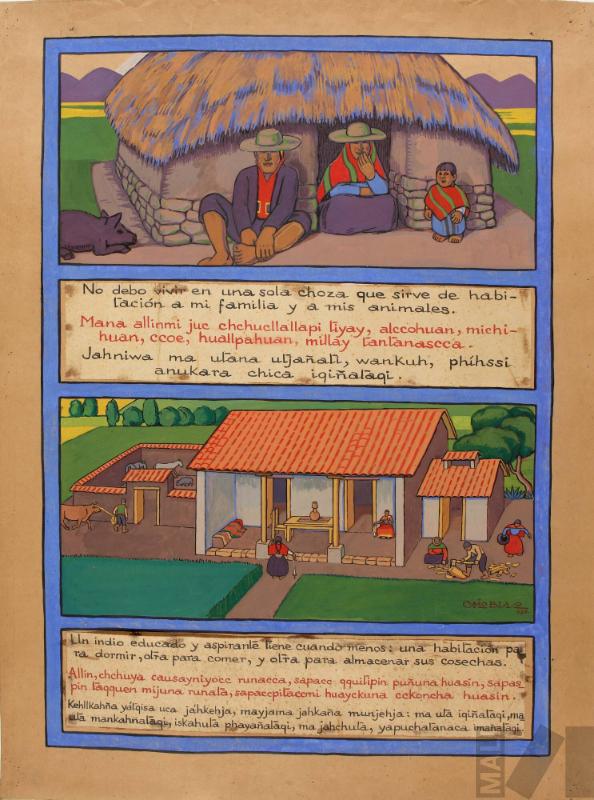 No debo vivir en una sola choza que sirve de habi-
tación a mi familia y a mis animales.
Mana allinmi juc chchucllallapi tiyay, alccohuan, michi-
huan, ccoe, huallpahuan, millay tantanascca.
Jahniwa ma utana utjañati, wankuh, phíhssi
anukara chica iqiñataqi.
OMC BLAS
Un indio educado y aspirante tiene cuando menos: una habitación pa-
ra dormir, otra para comer, y otra para almacenar sus cosechas.
Allin, chchuya causayniyocc runacca, sapacc qquitipin puñuna huasin, sapac
pin taqquen mijuna runata, sapaccpitacmi huayckuna cckoncha huasin.
Kehllkahña yátqisa uca jahkehja, mayjama jahkaña munjehja: ma uta iqiñataqi, ma
uta mankahnataqi, iskahuta phayañataqi, ma jahchuta, yapuchatanaca imañataqi.
MALI